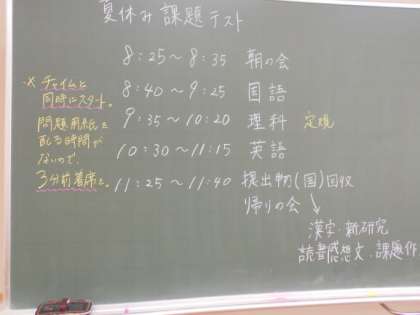 夏休み課題テスト
8:25〜8:35 朝の会
8:40〜9:25 国語
9:35〜10:20 理科 定規
10:30〜11:15 英語
11:25〜11:40 提出物(国)回収
帰りの会
漢字・新研究
読書感想文・課題作
※チャイムと
同時にスタート。
問題用紙を
配る時間が
ないので、
3分前着席を。